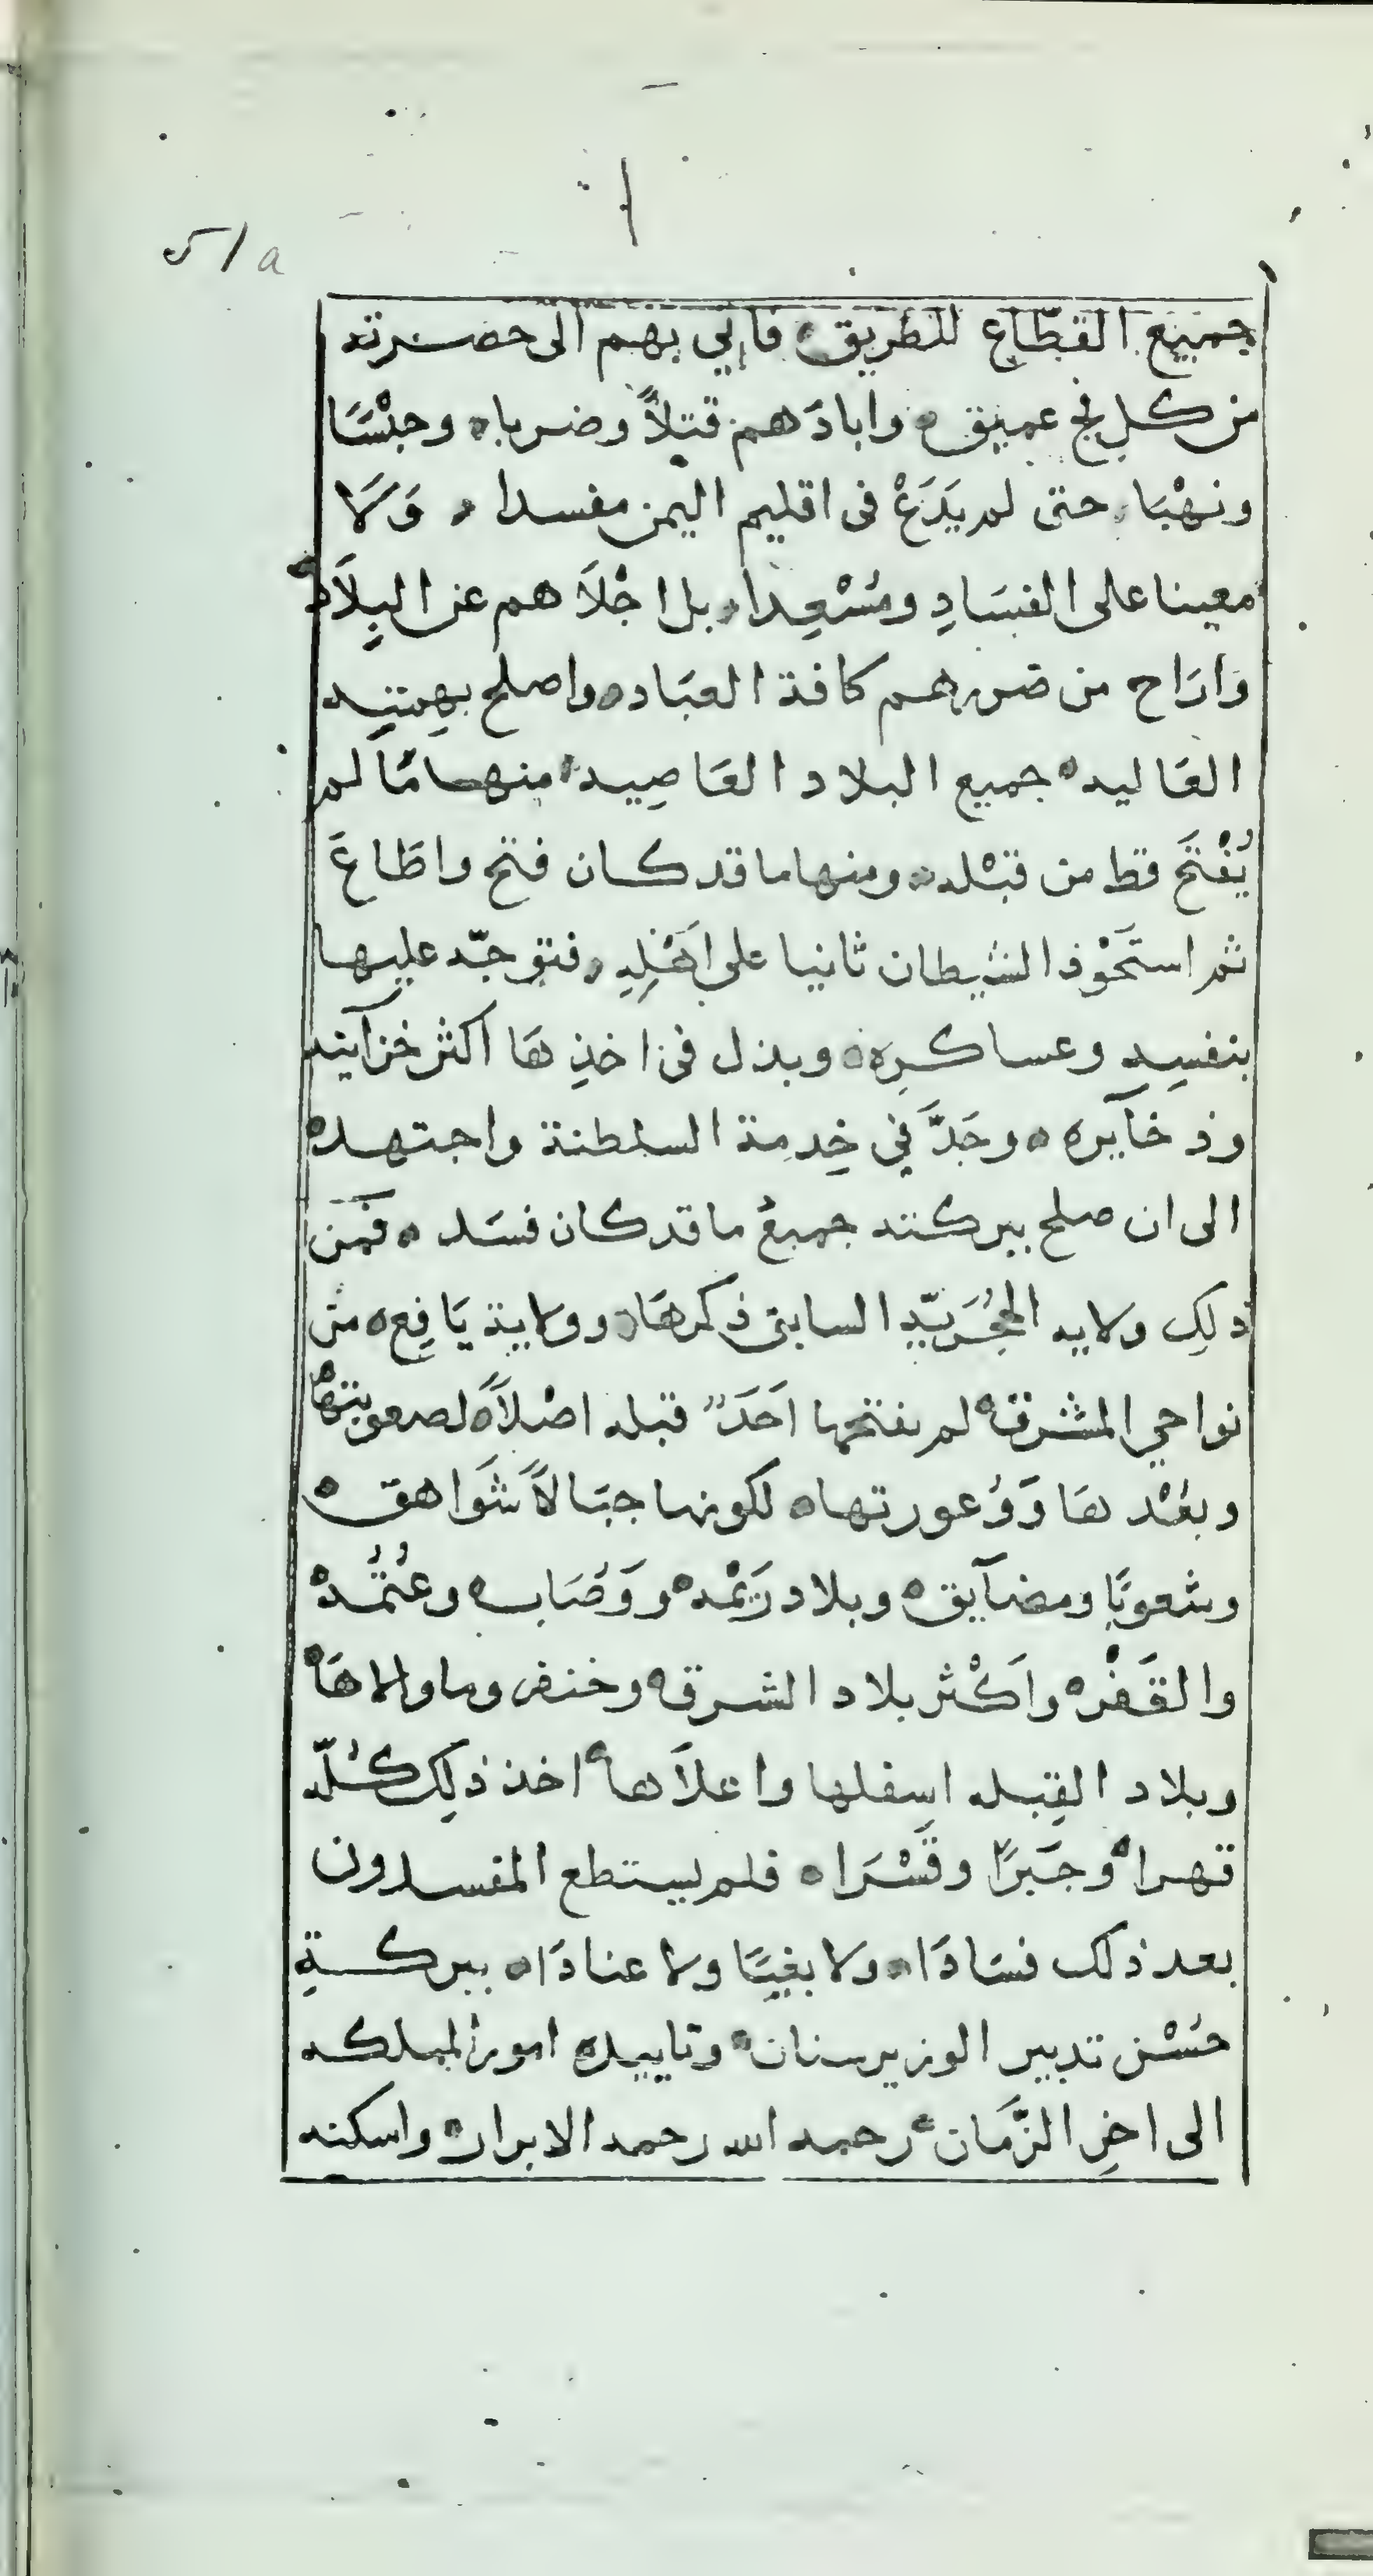 51a
جميع القطّاع للطريق ه فاتي بهم الى حضرته
من كل فج عميق ه وابادَهم قتلاً وضربا ه وحبْسًا
ونهْبًا ه حتى لم يَدَعْ فى اقليم اليمن مفسدا ه وَلَا
معينا على الفسَادِ ومُسْعِدا ه بل اجْلَاهم عن البِلَاد ه
وَارَاح من ضررهم كافة العبَاد ه واصلح بهمتِه
العَاليه ه جميع البلاد العَاصِيه ه منها مَا لم
يُفْتَح قط من قبْله ه ومنها ما قد كان فتح واطَاعَ
ثم استَحْوذ الشيطان ثانيا على اَهْلِهِ ه فتوجّه عليها
بنفسِه وعساكرِه ه وبذل فى اخذِهَا اكثر خزآينه
وذخآيره ه وجَدَّ فِي خِدمة السلطنة واجتهد ه
الى ان صلح ببركته جميعُ ما قد كان فسَد ه فمَن
ذلِك ولايه الحُجَريّه السابق ذكرهَا ه وولاية يَافِع ه من
نواحي المشرق ه لم يفتحها اَحَدٌ قبله اصْلاً ه لصعوبتهَا
وبعْدهَا وَوُعورتها ه لكونها جبَالاً شَواهق ه
وشعوبًا ومضآيق ه وبلاد رَيْمه ه ووَصَاب ه وعُتُمه ه
والقَفْر ه واَكْثر بلاد الشرق ه وخنفر وما والاهَا ه
وبلاد القِبله اسفلها واعلَاها ه اخذ ذلِك كُلّه
قهرا ه وجَبرًا وقَسْرَا ه فلم يستطع المفسدون
بعد ذلك فسَادَا ه ولا بغيًا ولا عنادَا ه ببركةِ
حُسْن تدبير الوزير سنان ه وتاييده امور المملكه
الى اخرِ الزَّمَان ه رحمه الله رحمة الابرار ه واسكنه